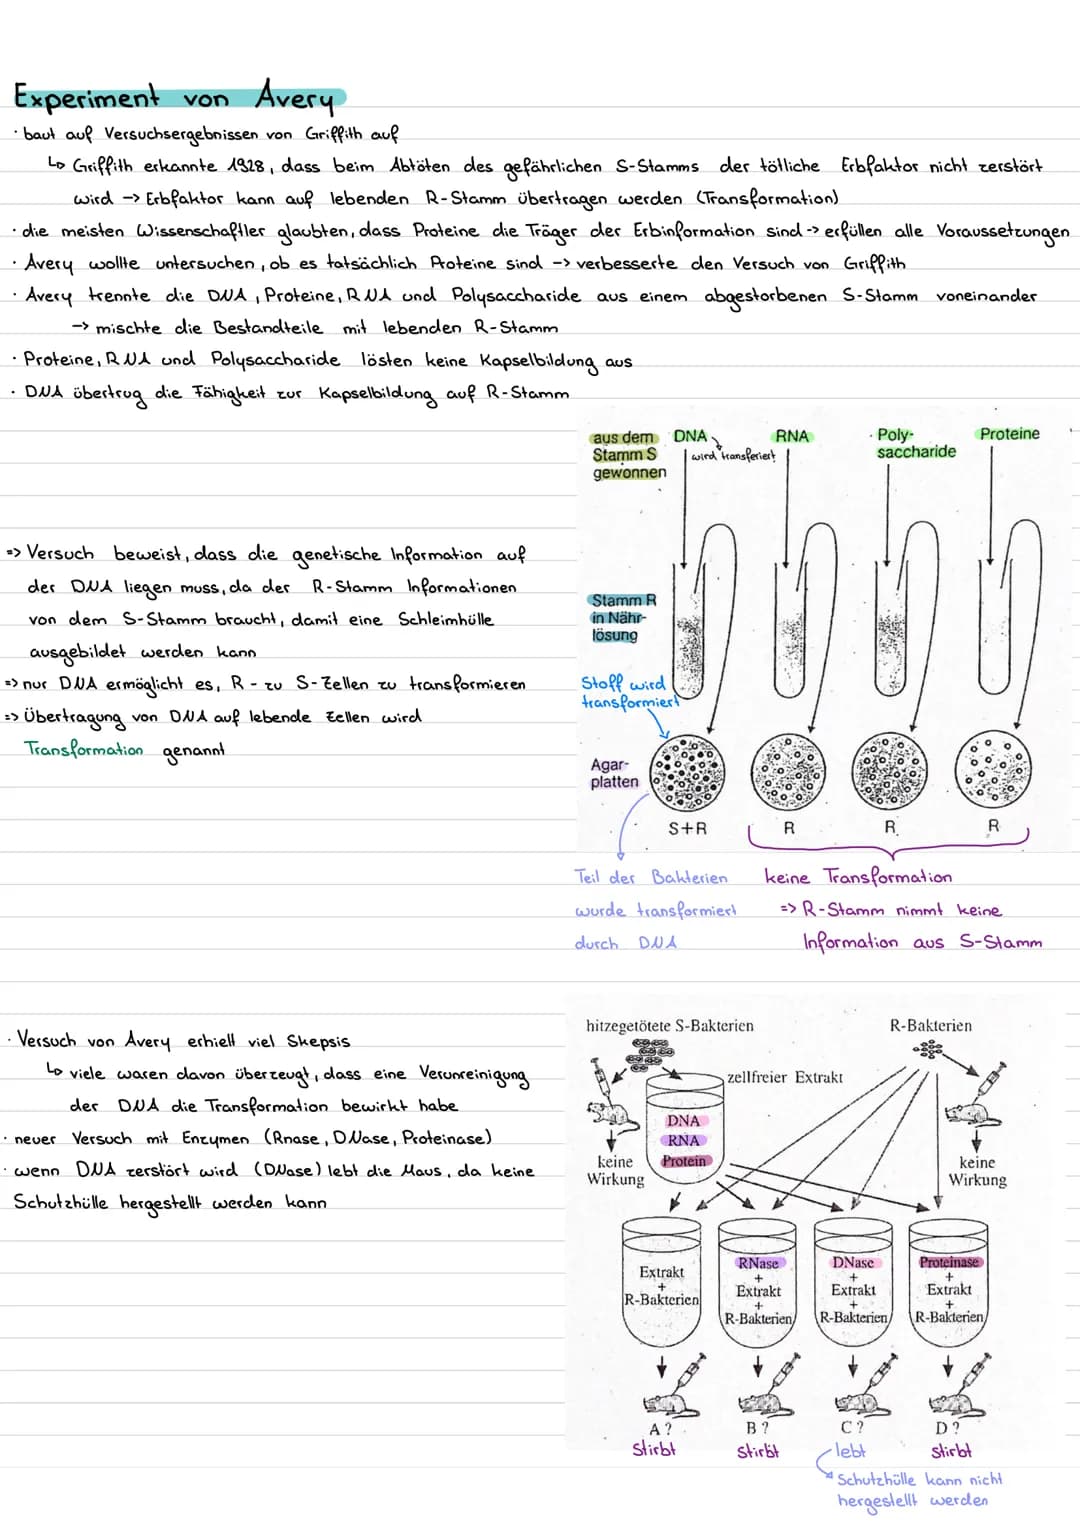 Experiment von Avery
· baut auf Versuchsergebnissen von Griffith auf
↳ Griffith erkannte 1928, dass beim Abtöten des gefährlichen S-Stamms der tötliche Erbfaktor nicht zerstört
wird -> Erbfaktor kann auf lebenden R-Stamm übertragen werden (Transformation)
· die meisten Wissenschaftler glaubten, dass Proteine die Träger der Erbinformation sind -> erfüllen alle Voraussetzungen
· Avery wollte untersuchen, ob es tatsächlich Proteine sind -> verbesserte den Versuch von Griffith
· Avery trennte die DNA, Proteine, RNA und Polysaccharide aus einem abgestorbenen S-Stamm voneinander
-> mischte die Bestandteile mit lebenden R-Stamm
· Proteine, RNA und Polysaccharide lösten keine Kapselbildung aus
· DNA übertrug die Fähigkeit zur Kapselbildung auf R-Stamm
aus dem Stamm S gewonnen
DNA
wird transferiert
RNA
Poly-
saccharide
Proteine
=> Versuch beweist, dass die genetische Information auf
der DNA liegen muss, da der R-Stamm Informationen
von dem S-Stamm braucht, damit eine Schleimhülle
ausgebildet werden kann
=> nur DNA ermöglicht es, R- zu S-Zellen zu transformieren
=> Übertragung von DNA auf lebende Zellen wird
Transformation genannt
Stamm R
in Nähr-
lösung
Stoff wird
transformiert
Agar-
platten
S+R
R
R
R
Teil der Bakterien
wurde transformiert
durch DNA
keine Transformation
=> R-Stamm nimmt keine
Information aus S-Stamm
· Versuch von Avery erhiell viel Skepsis
↳ viele waren davon überzeugt, dass eine Verunreinigung
der DNA die Transformation bewirkt habe
· neuer Versuch mit Enzymen (Rnase, DNase, Proteinase)
· wenn DNA zerstört wird (DNase) lebt die Maus, da keine
Schutzhülle hergestellt werden kann
hitzegetötete S-Bakterien
R-Bakterien
zellfreier Extrakt
DNA
RNA
Protein
keine
Wirkung
keine
Wirkung
Extrakt
+
R-Bakterien
RNase
+
Extrakt
+
R-Bakterien
DNase
+
Extrakt
+
R-Bakterien
Proteinase
+
Extrakt
+
R-Bakterien
A?
B?
C?
D?
Stirbt
Stirbt
lebt
stirbt
Schutzhülle kann nicht
hergestellt werden